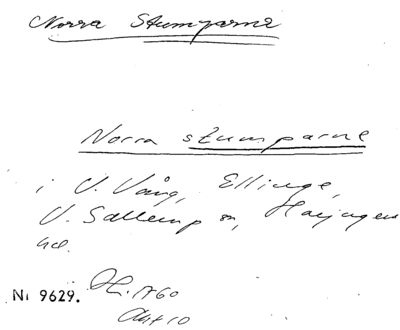 Norra Stumparne
Norra stumparne
i V. Vång, Ellinge,
V. Sallerup sn, Harjagers
hd.
Nr 9629.
1760
Akt 10